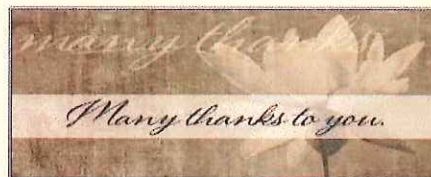 many thanks
Many thanks to you.